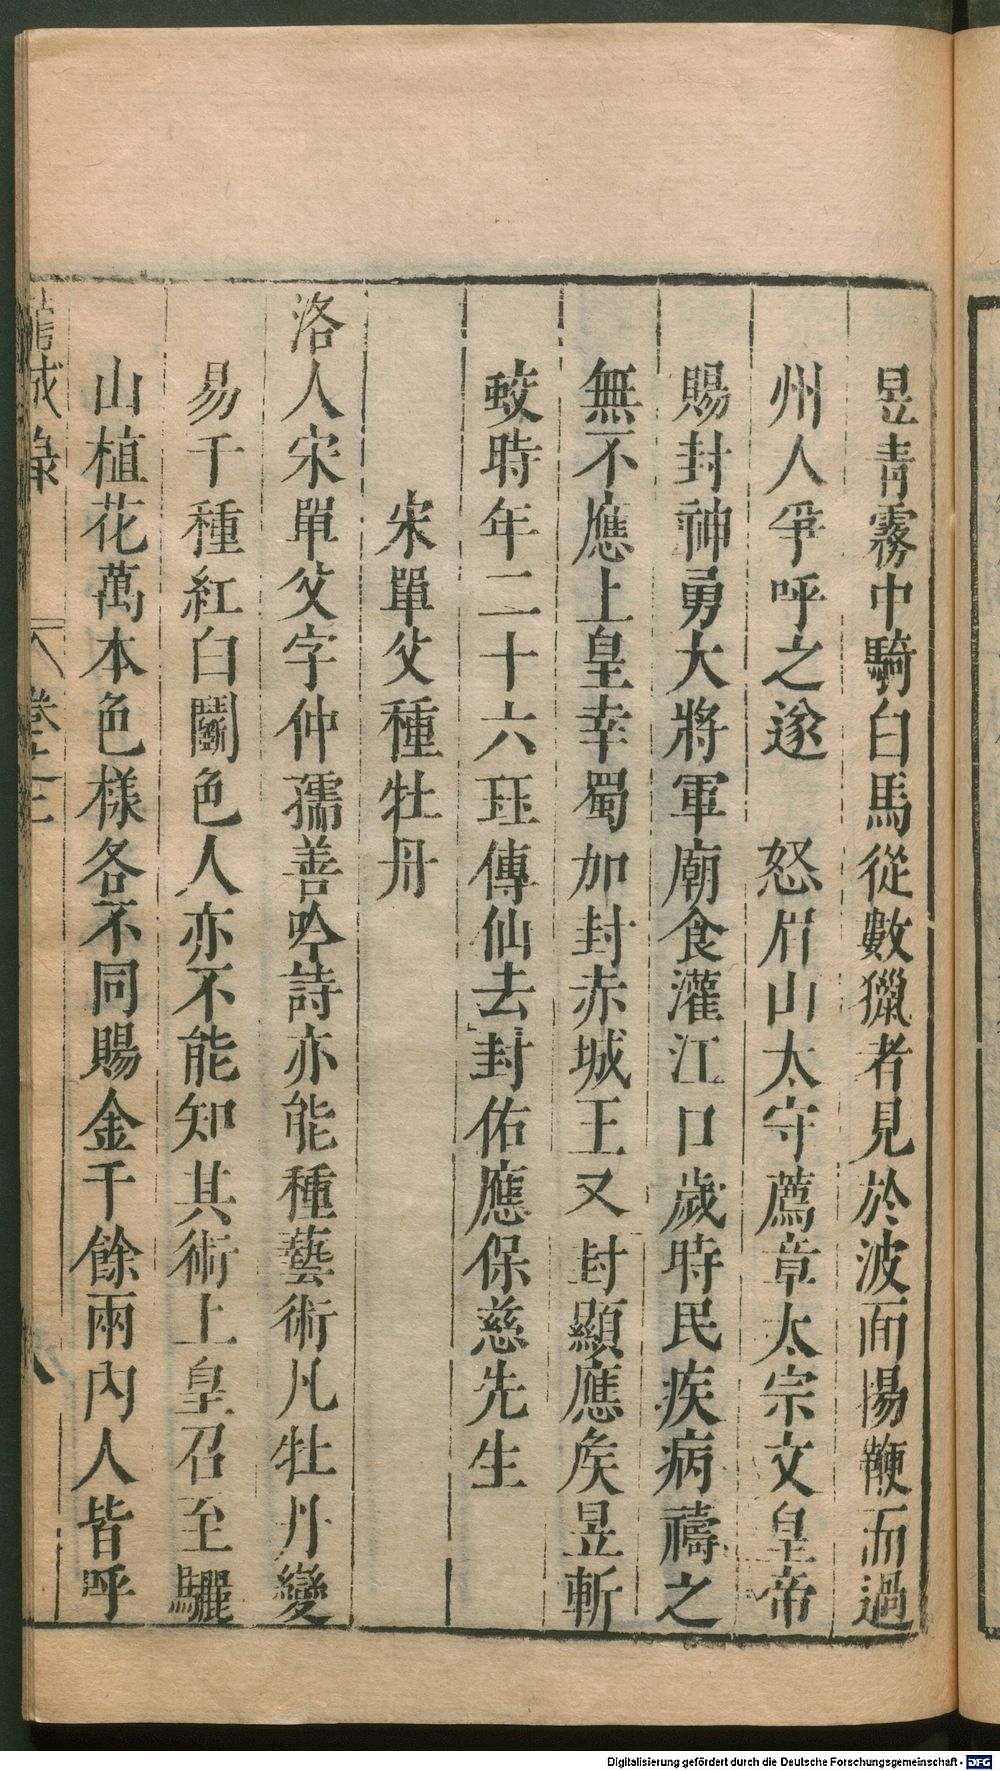 昱青霧中騎白馬從數獵者見於波面揚鞭而過
州人爭呼之遂 怒眉山太守薦章太宗文皇帝
賜封神勇大將軍廟食灌江口歲時民疾病禱之
無不應上皇幸蜀加封赤城王又封顯應矦昱斬
蛟時年二十六珏傳仙去封佑應保慈先生
宋單父種牡丹
洛人宋單父字仲孺善吟詩亦能種藝術凡牡丹變
易千種紅白鬭色人亦不能知其術上皇召至驪
山植花萬本色樣各不同賜金千餘兩內人皆呼
龍城錄
卷之三
八
Digitalisierung gefördert durch die Deutsche Forschungsgemeinschaft - DFG